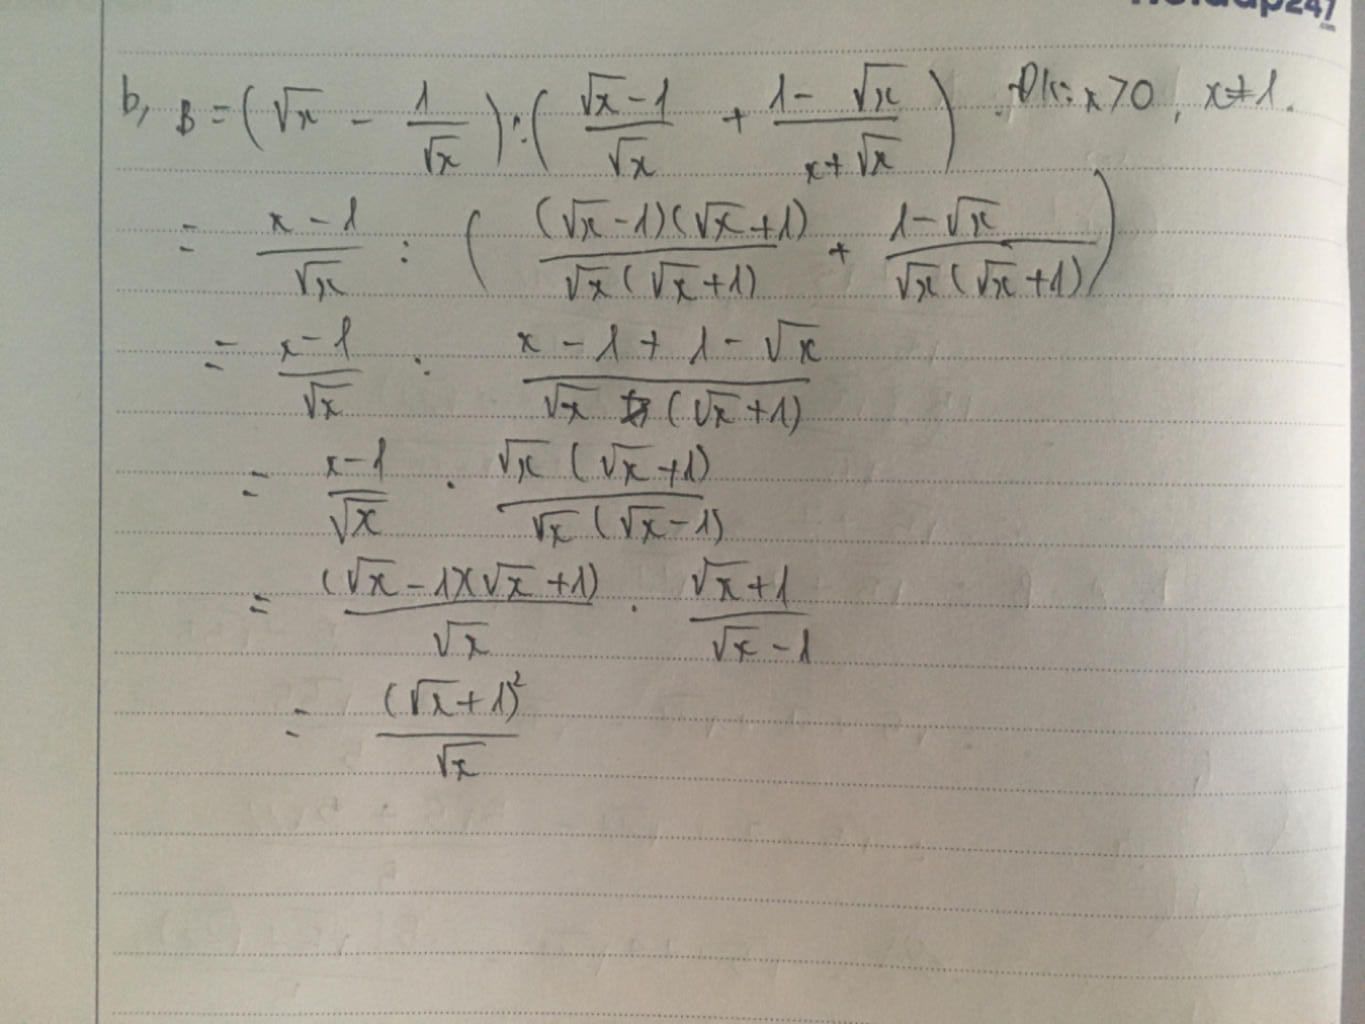 b, B = (√x - 1/√x) : ((√x - 1)/√x + (1 - √x)/(x + √x)) Đk: x > 0, x ≠ 1.
= (x - 1)/√x : ((√x - 1)(√x + 1)/(√x(√x + 1)) + (1 - √x)/(√x(√x + 1)))
= (x - 1)/√x : (x - 1 + 1 - √x)/(√x (√x + 1))
= (x - 1)/√x . √x(√x + 1)/(√x(√x - 1))
= (√x - 1)(√x + 1)/√x . (√x + 1)/(√x - 1)
= (√x + 1)²/√x